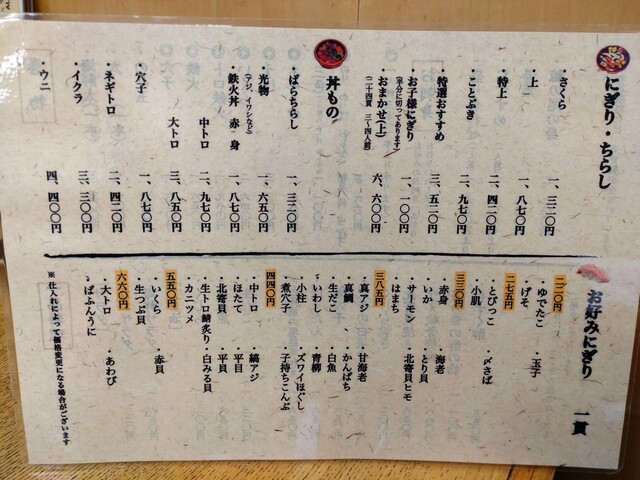 にぎり・ちらし
・さくら 一、三二〇円
・上 一、八七〇円
・特上 二、四二〇円
・ことぶき 二、九七〇円
・特選おすすめ 三、五二〇円
・お子様にぎり 一、一〇〇円
（半分に切ってあります）
・おまかせ（上） 六、六〇〇円
（二十四貫 三〜四人前）
丼もの
・ばらちらし 一、三二〇円
・光物 一、六五〇円
（アジ、イワシなど）
・鉄火丼 赤身 一、八七〇円
中トロ 二、九七〇円
大トロ 三、八五〇円
・穴子 一、八七〇円
・ネギトロ 二、四二〇円
・イクラ 三、三〇〇円
・ウニ 四、四〇〇円
お好みにぎり 一貫
二二〇円
・ゆでたこ ・玉子
・げそ
二七五円
・とびっこ ・〆さば
・小肌
三三〇円
・赤身 ・海老
・いか ・とり貝
・サーモン ・北寄貝ヒモ
・はまち
三八五円
・真アジ ・甘海老
・真鯛 ・かんぱち
・生だこ ・白魚
・いわし ・青柳
・小柱 ・ズワイほぐし
・煮穴子 ・子持ちこんぶ
四四〇円
・中トロ ・縞アジ
・ほたて ・平目
・北寄貝 ・平貝
・生トロ鯖炙り ・白みる貝
・カニツメ
五五〇円
・いくら ・赤貝
・生つぶ貝
六六〇円
・大トロ ・あわび
・ばふんうに
※仕入れによって価格変更になる場合がございます